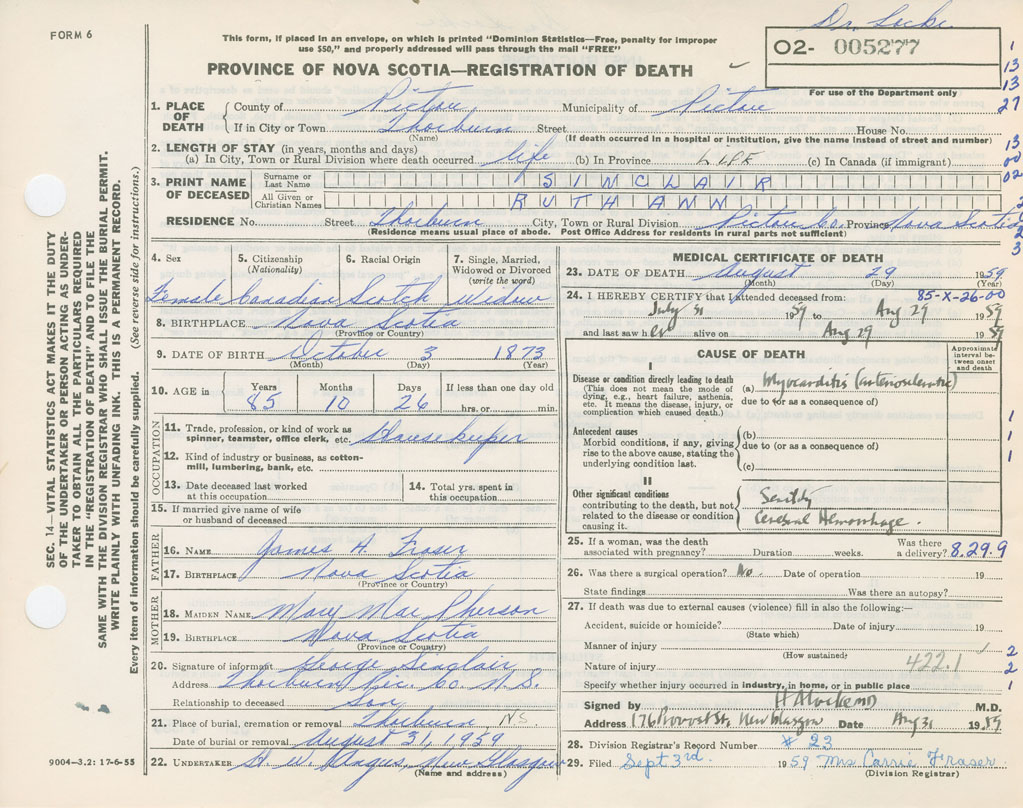 FORM 6
This form, if placed in an envelope, on which is printed "Dominion Statistics—Free, penalty for improper
use $50," and properly addressed will pass through the mail "FREE"
Dr. Locke
O2- 005277
For use of the Department only
PROVINCE OF NOVA SCOTIA—REGISTRATION OF DEATH
1. PLACE OF DEATH County of Pictou Municipality of Pictou
If in City or Town Thorburn Street House No.
(Name) (If death occurred in a hospital or institution, give the name instead of street and number)
2. LENGTH OF STAY (in years, months and days)
(a) In City, Town or Rural Division where death occurred life (b) In Province LIFE (c) In Canada (if immigrant)
3. PRINT NAME OF DECEASED
Surname or Last Name SINCLAIR
All Given or Christian Names RUTH ANN
RESIDENCE No. Street Thorburn City, Town or Rural Division Pictou Co. Province Nova Scotia
(Residence means usual place of abode. Post Office Address for residents in rural parts not sufficient)
1
13
13
27
13
00
02
2
3
SEC. 14—VITAL STATISTICS ACT MAKES IT THE DUTY
OF THE UNDERTAKER OR PERSON ACTING AS UNDER-
TAKER TO OBTAIN ALL THE PARTICULARS REQUIRED
IN THE "REGISTRATION OF DEATH" AND TO FILE THE
SAME WITH THE DIVISION REGISTRAR WHO SHALL ISSUE THE BURIAL PERMIT.
WRITE PLAINLY WITH UNFADING INK. THIS IS A PERMANENT RECORD.
Every item of information should be carefully supplied. (See reverse side for instructions.)
4. Sex Female
5. Citizenship (Nationality) Canadian
6. Racial Origin Scotch
7. Single, Married, Widowed or Divorced (write the word) Widow
8. BIRTHPLACE Nova Scotia
(Province or Country)
9. DATE OF BIRTH October 3 1873
(Month) (Day) (Year)
10. AGE in Years 85 Months 10 Days 26 If less than one day old hrs. or min.
OCCUPATION
11. Trade, profession, or kind of work as spinner, teamster, office clerk, etc. Housekeeper
12. Kind of industry or business, as cotton-mill, lumbering, bank, etc.
13. Date deceased last worked at this occupation
14. Total yrs. spent in this occupation
15. If married give name of wife or husband of deceased
FATHER
16. NAME James A. Fraser
17. BIRTHPLACE Nova Scotia
(Province or Country)
MOTHER
18. MAIDEN NAME Mary Mac Pherson
19. BIRTHPLACE Nova Scotia
(Province or Country)
20. Signature of informant George Sinclair
Address Thorburn Pic. Co. N.S.
Relationship to deceased Son
21. Place of burial, cremation or removal Thorburn NS
Date of burial or removal August 31, 1959
22. UNDERTAKER H. W. Angus, New Glasgow
(Name and address)
9004-3.2: 17-6-55
MEDICAL CERTIFICATE OF DEATH
23. DATE OF DEATH August 29 1959
(Month) (Day) (Year)
85-X-26-00
24. I HEREBY CERTIFY that I attended deceased from:
July 31 1959 to Aug 29 1959
and last saw her alive on Aug 29 1959
CAUSE OF DEATH
Approximate interval between onset and death
I
Disease or condition directly leading to death
(This does not mean the mode of dying, e.g., heart failure, asthenia, etc. It means the disease, injury, or complication which caused death.)
(a) Myocarditis (arteriosclerotic)
due to (or as a consequence of)
Antecedent causes
Morbid conditions, if any, giving rise to the above cause, stating the underlying condition last.
(b)
due to (or as a consequence of)
(c)
1
1
1
II
Other significant conditions
contributing to the death, but not related to the disease or condition causing it.
Senility
Cerebral Hemorrhage.
25. If a woman, was the death associated with pregnancy? Duration weeks. Was there a delivery? 8.29.9
26. Was there a surgical operation? No. Date of operation 19
State findings Was there an autopsy?
27. If death was due to external causes (violence) fill in also the following:—
Accident, suicide or homicide? Date of injury 19
(State which)
Manner of injury
(How sustained)
Nature of injury 422.1
Specify whether injury occurred in industry, in home, or in public place
2
2
1
Signed by H A Locke MD M.D.
Address 176 Provost St, New Glasgow Date Aug 31 1959
28. Division Registrar's Record Number # 23
29. Filed Sept 3rd. 1959 Mrs Carrie Fraser
(Division Registrar)